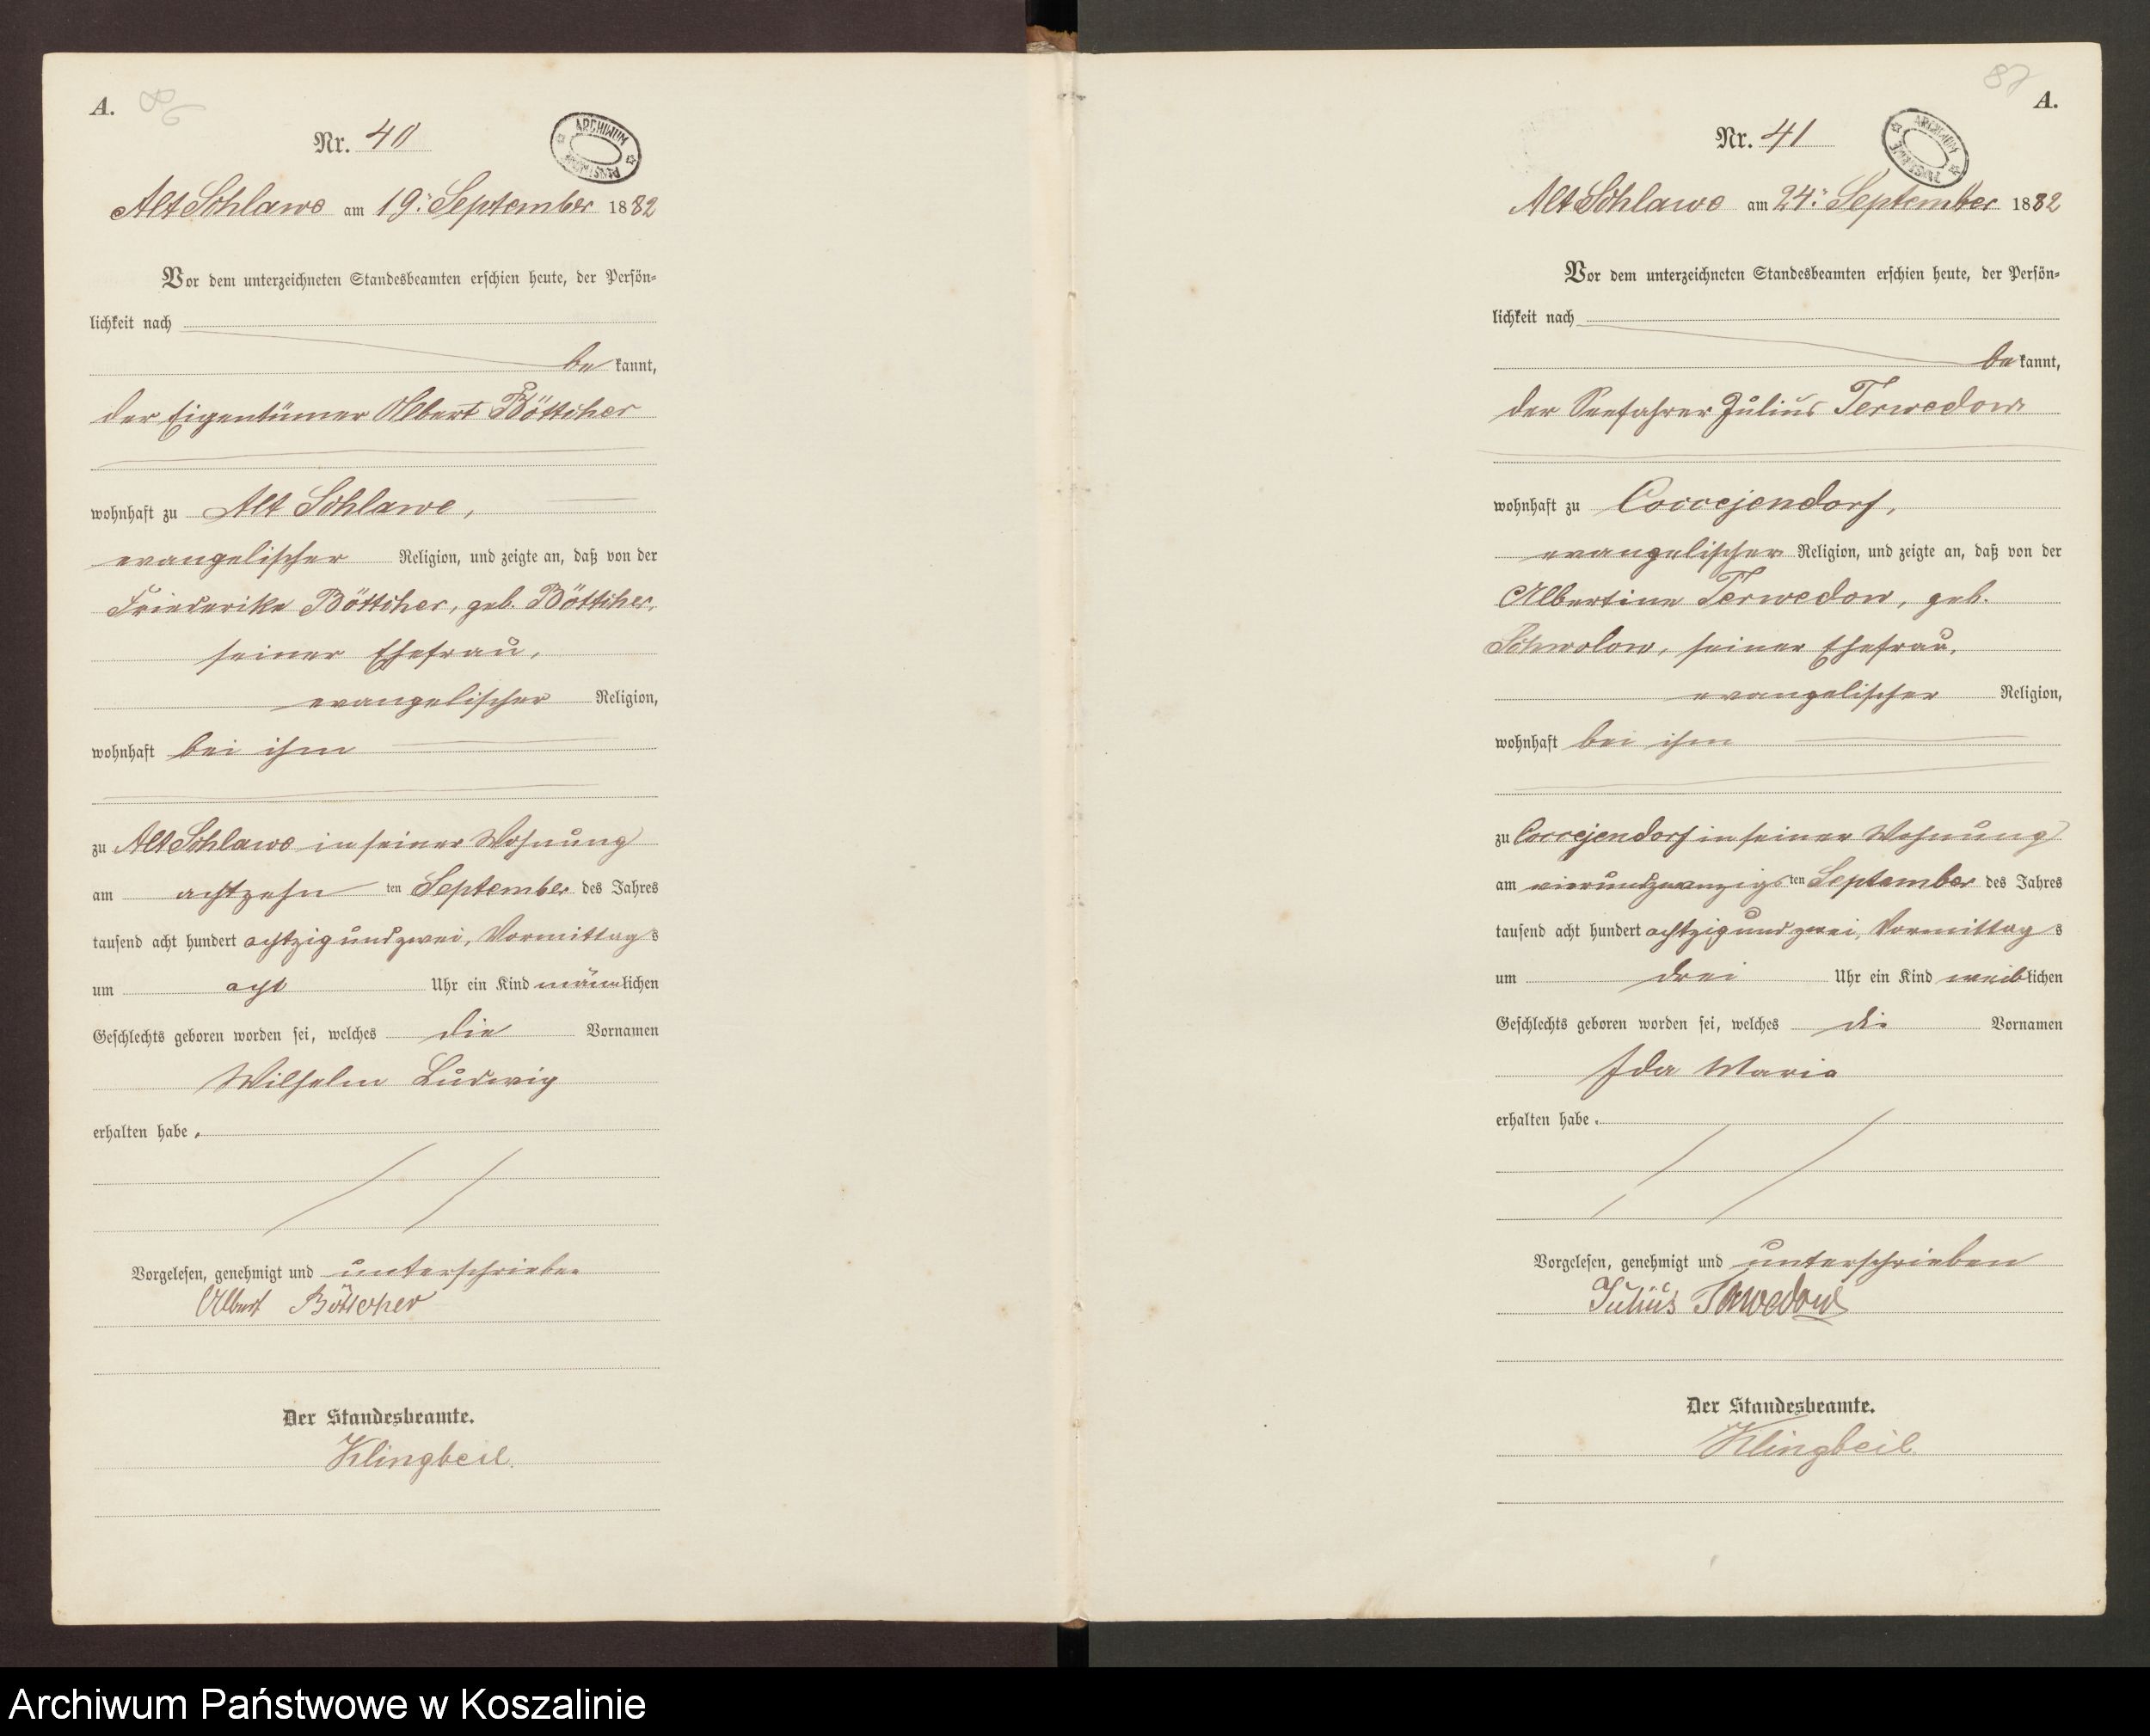 A.
86
Nr. 40
ARCHIWUM PAŃSTWOWE
Alt Schlawe am 19ten September 1882
Vor dem unterzeichneten Standesbeamten erschien heute, der Persön-
lichkeit nach
bekannt,
der Eigentümer Albert Böttcher
wohnhaft zu Alt Schlawe,
evangelischer Religion, und zeigte an, daß von der
Friederike Böttcher, geb. Böttcher,
seiner Ehefrau,
evangelischer Religion,
wohnhaft bei ihm
zu Alt Schlawe in seiner Wohnung
am achtzehnten September des Jahres
tausend acht hundert achtzig und zwei, Vormittags
um acht Uhr ein Kind männlichen
Geschlechts geboren worden sei, welches die Vornamen
Wilhelm Ludwig
erhalten habe.
Vorgelesen, genehmigt und unterschrieben
Albert Böttcher
Der Standesbeamte.
Klingbeil.
87
A.
Nr. 41
ARCHIWUM PAŃSTWOWE
Alt Schlawe am 24ten September 1882
Vor dem unterzeichneten Standesbeamten erschien heute, der Persön-
lichkeit nach
bekannt,
der Seefahrer Julius Terwedow
wohnhaft zu Coccejendorf,
evangelischer Religion, und zeigte an, daß von der
Albertine Terwedow, geb.
Schwolow, seiner Ehefrau,
evangelischer Religion,
wohnhaft bei ihm
zu Coccejendorf in seiner Wohnung
am vierundzwanzigsten September des Jahres
tausend acht hundert achtzig und zwei, Vormittags
um drei Uhr ein Kind weiblichen
Geschlechts geboren worden sei, welches die Vornamen
Ida Maria
erhalten habe.
Vorgelesen, genehmigt und unterschrieben
Julius Terwedow
Der Standesbeamte.
Klingbeil.
Archiwum Państwowe w Koszalinie